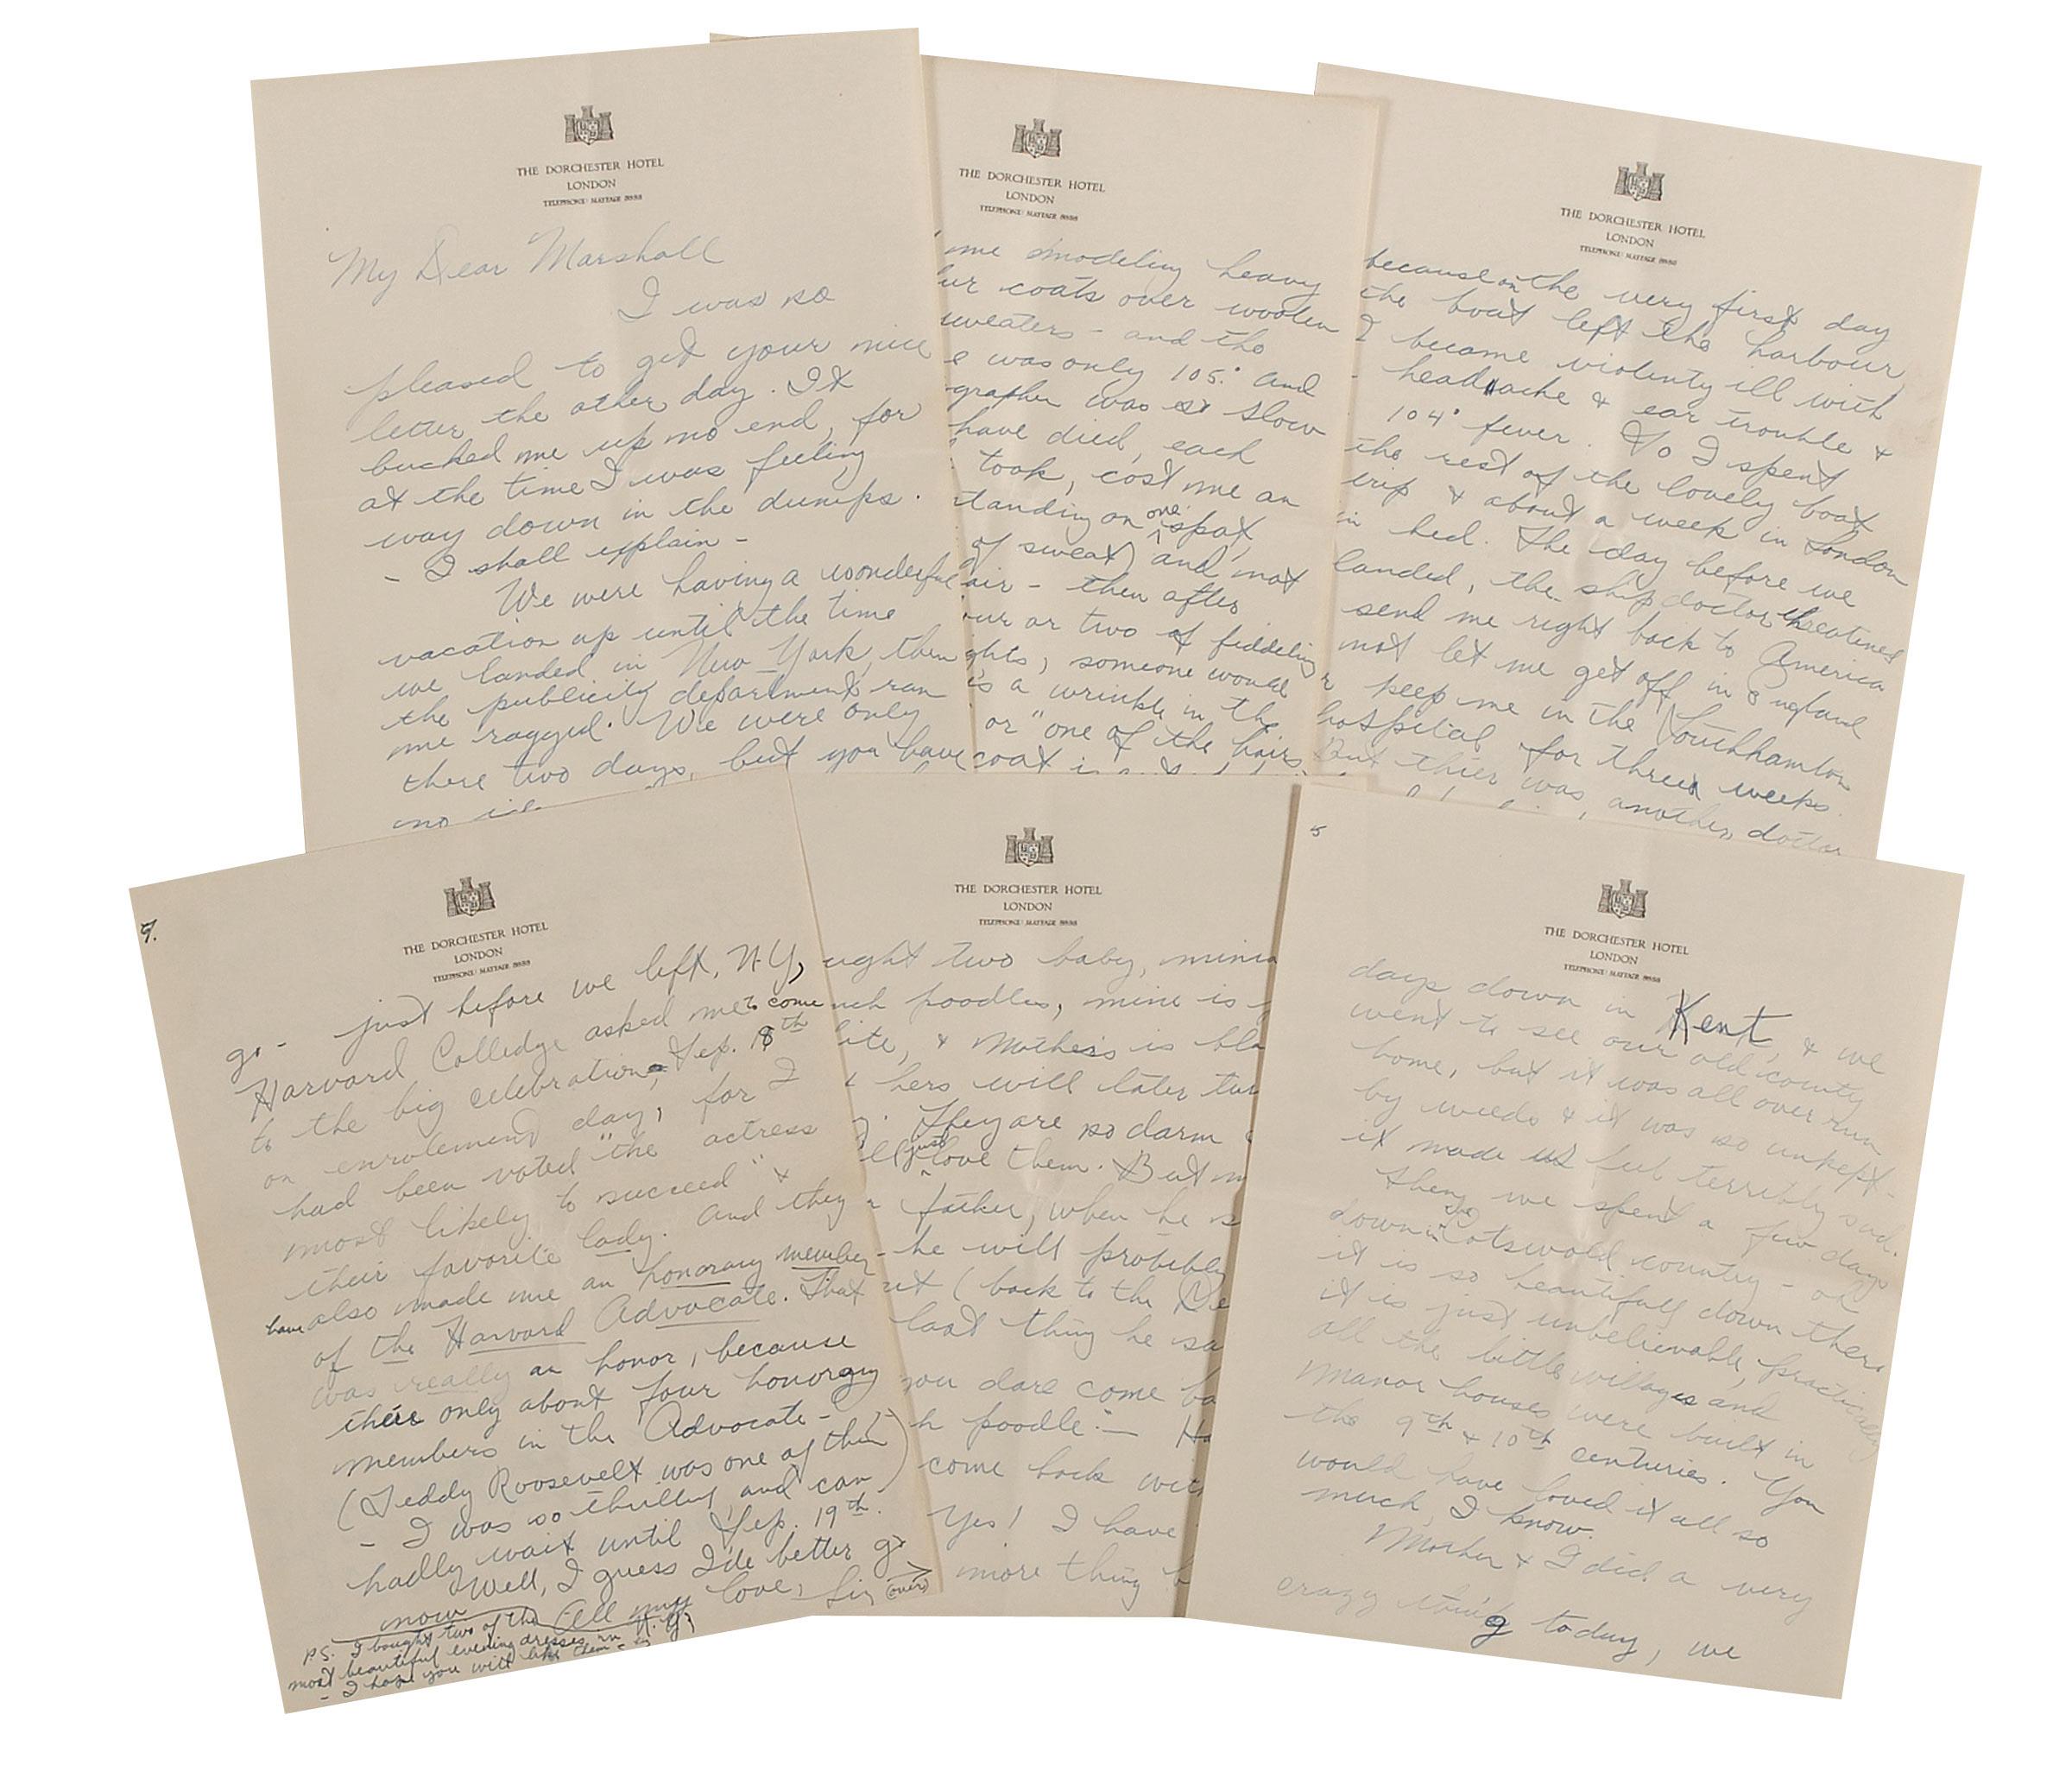 THE DORCHESTER HOTEL
LONDON
TELEPHONE: MAYFAIR 8888
My Dear Marshall
I was so
pleased to get your nice
letter the other day. It
bucked me up no end, for
at the time I was feeling
way down in the dumps.
- I shall explain -
We were having a wonderful
vacation up until the time
we landed in New York, then
the publicity department ran
me ragged. We were only
there two days, but you have
no
THE DORCHESTER HOTEL
LONDON
TELEPHONE: MAYFAIR 8888
me modeling heavy
ur coats over woolen
sweaters - and the
e was only 105.° and
grapher was so slow
have died, each
took, cost me an
standing on one spot,
of sweat) and not
air - then after
our or two of fiddeling
ghts, someone would
is a wrinkle in the
or "one of the hairs
coat is
THE DORCHESTER HOTEL
LONDON
TELEPHONE: MAYFAIR 8888
because on the very first day
the boat left the harbour,
I became violenty ill with
headache & ear trouble &
104° fever. So I spent
the rest of the lovely boat
trip & about a week in London
in bed. The day before we
landed, the ship doctor threatened
send me right back to America
not let me get off in England
r keep me in the Southhamton
hospital for three weeks.
But thier was, another doctor
7.
THE DORCHESTER HOTEL
LONDON
TELEPHONE: MAYFAIR 8888
go - just before we left, N.Y,
Harvard Colledge asked me to come
to the big celebration, Sep. 18th
on enrolement day, for I
had been voted "the actress
most likely to succeed" &
their favorite lady. And they
have also made me an honorary member
of the Harvard Advocate. That
was really an honor, because
theis only about four honorary
members in the Advocate -
(Teddy Roosevelt was one of them)
- I was so thrilled, and can
hadly wait until Sep. 19th.
Well, I guess I'de better go
now All my love,
(over)
P.S. I bought two of the
most beautiful evening dresses in N.Y,
- I hope you will like them -
THE DORCHESTER HOTEL
LONDON
TELEPHONE: MAYFAIR 8888
ught two baby, minia
nch poodles, mine is
ite, & Mother's is bla
hers will later tur
They are so darm
ll just love them. But
father, when he
- he will probibly
(back to the
last thing he sa
you dare come ba
h poodle." - Ha
come back wit
Yes! I have
more thing b
5
THE DORCHESTER HOTEL
LONDON
TELEPHONE: MAYFAIR 8888
days down in Kent, & we
went to see our old county
home, but it was all over run
by weeds & it was so unkept -
it made us feel terribly sad.
Then, we spent a few days
down in the Cotswold country - oh
it is so beautifull down there
it is just unbelievable, practically
all the little villages and
manor houses were built in
the 9th & 10th centuries. You
would have loved it all so
much, I know.
Mother & I did a very
crazy thing today, we